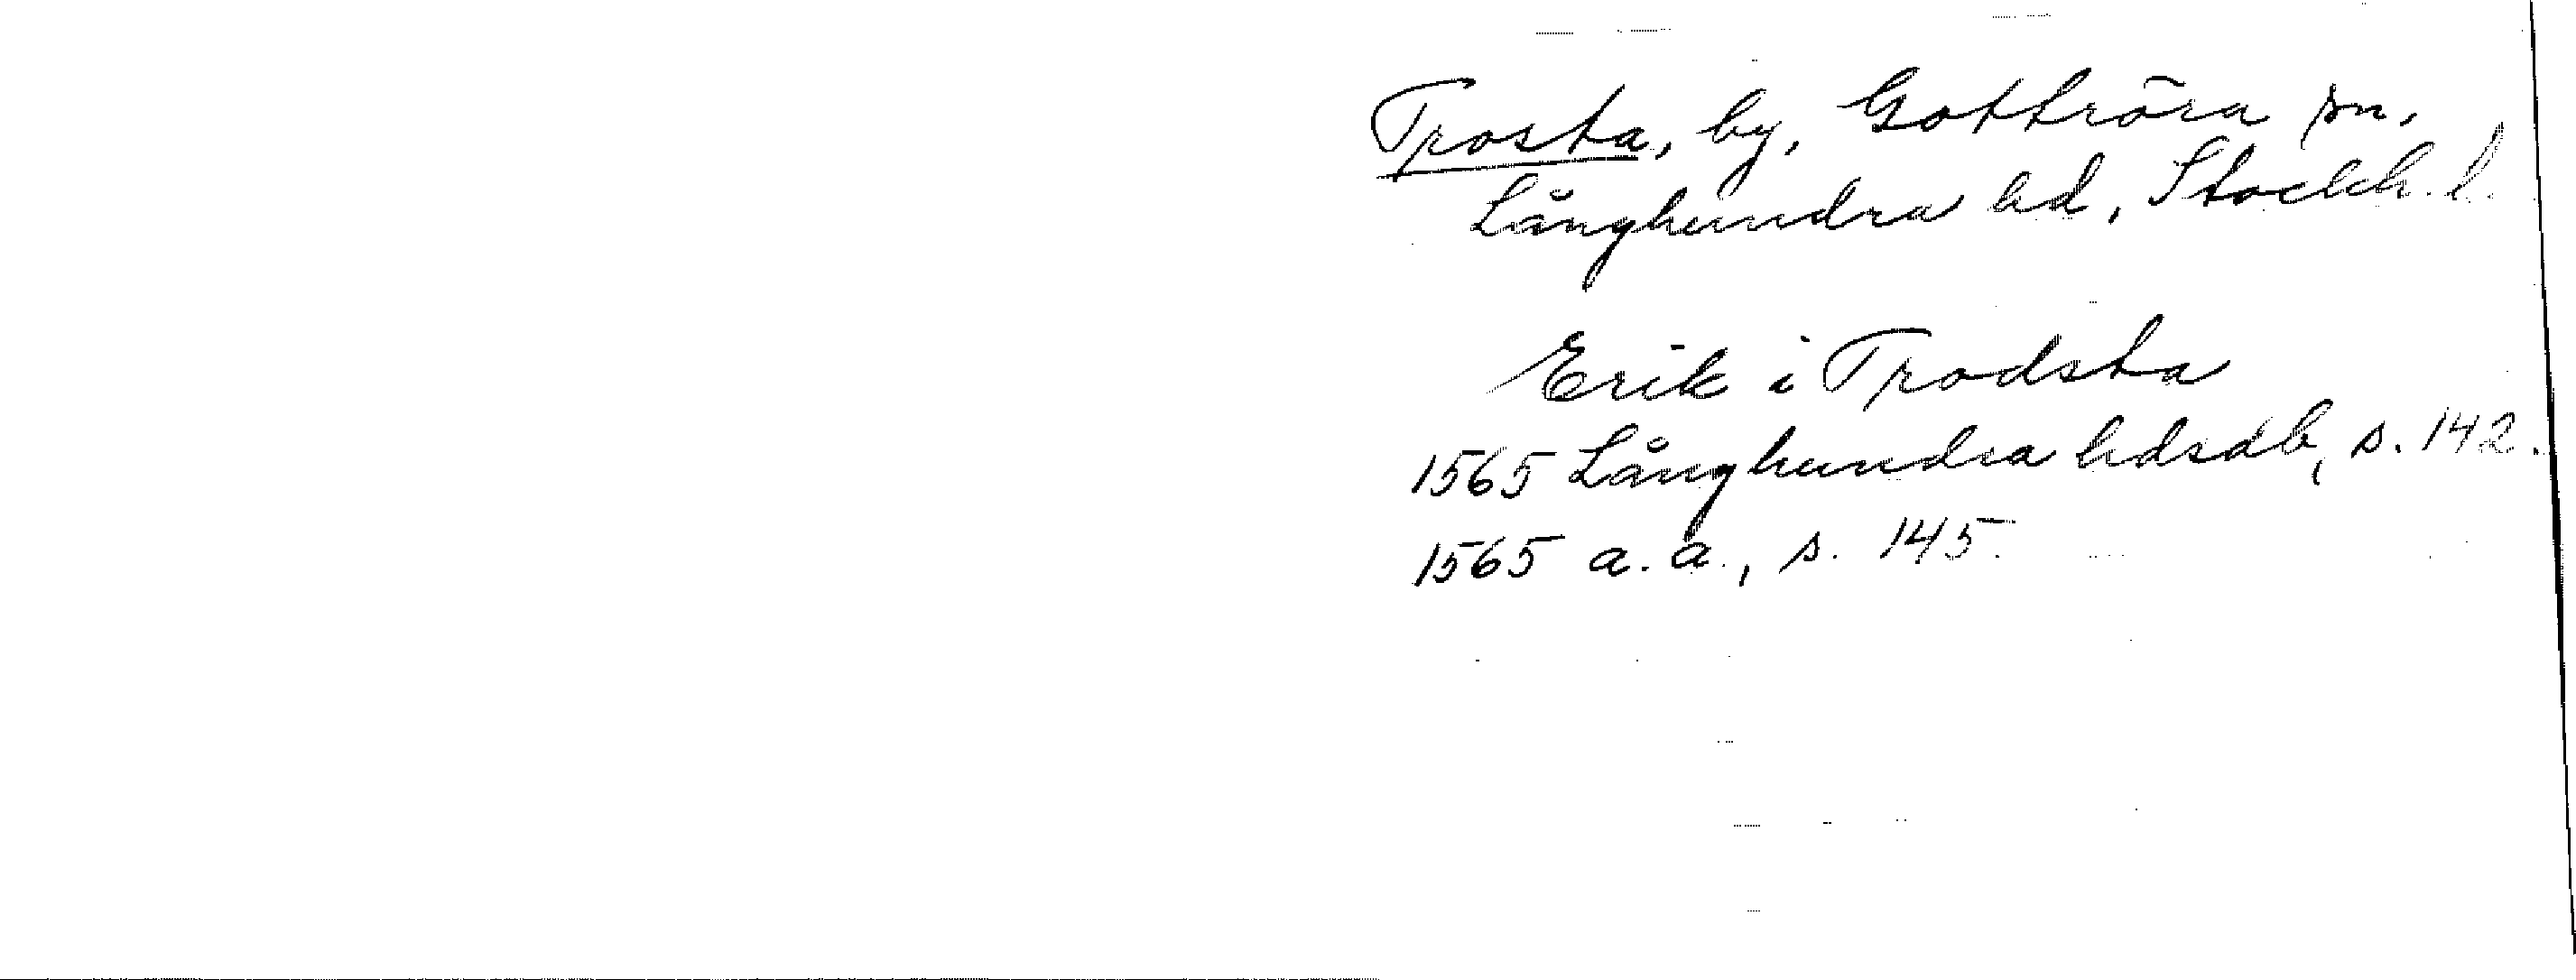 Trosta, by, Gottröra sn,
Långhundra hd, Stockh. l.
Erik i Trodsta
1565 Långhundra hdsdb, s. 142.
1565 a. a., s. 145.